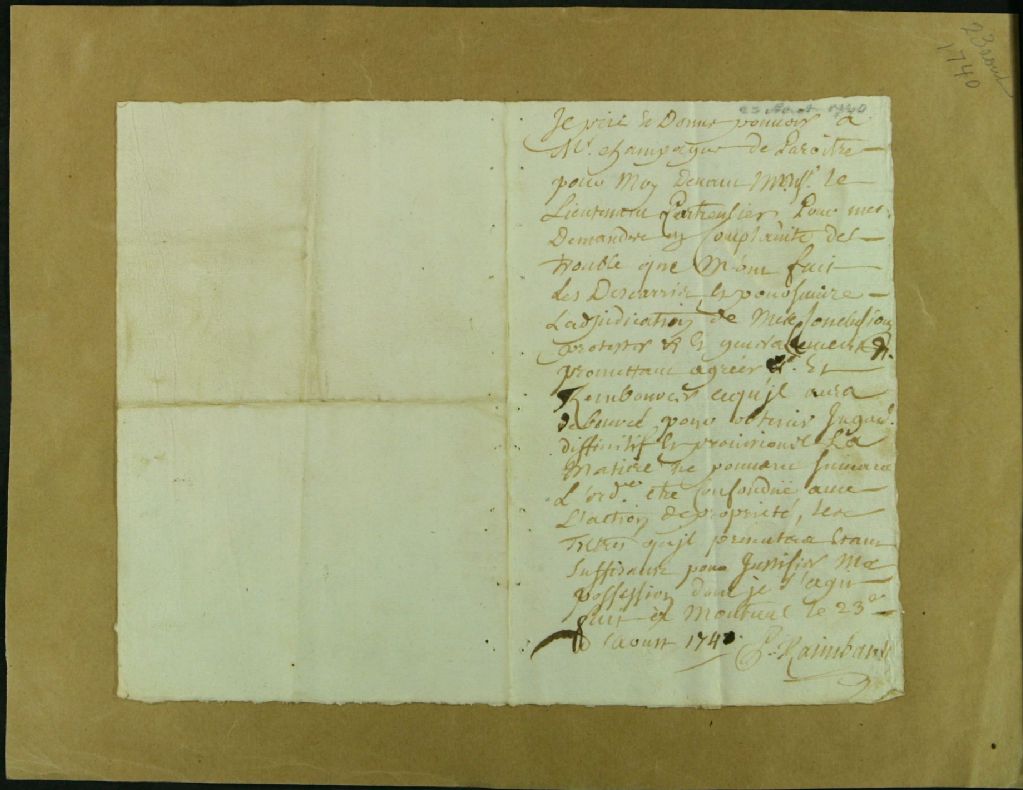 23 aout
1740
23 Aout 1740
Je prie et Donne pouvoir a
Mr. champagne de Paroitre
pour Moy Devant Monsr. le
Lieutenant Particulier Pour mes
Demandes en Complainte des
trouble que M'ont fait
Les Descarries et poursuivre
L'adjudication de Mes Conclusions
protester et generalement &.
promettant agreer &a. Et
Rembourcer cequ'jl aura
debourcé pour obtenir Jugemt.
diffinitif et provisionel La
Matiere ne pouvant suivant
L'ordce. etre Confondue avec
L'action de proprieté, les
Titres qu'jl presentera Etant
suffisant pour Justifier Ma
possession dont jl s'agit
fait a Montreal le 23e
aoust 1740 P. Raimbault